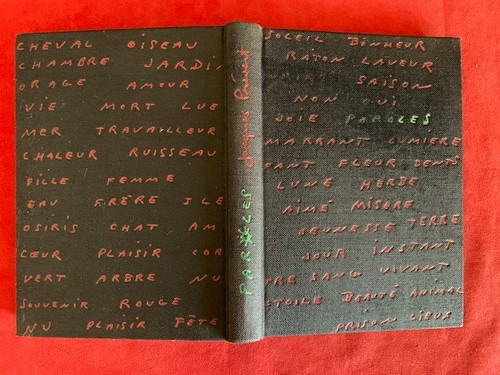 CHEVAL OISEAU
CHAMBRE JARDIN
ORAGE AMOUR
VIE MORT LUE
MER TRAVAILLEUR
CHALEUR RUISSEAU
FILLE FEMME
EAU FRÈRE ILE
OSIRIS CHAT AM
CŒUR PLAISIR COR
VERT ARBRE NU
SOUVENIR ROUGE
NU PLAISIR FÊTE
Jacques Prévert
PAROLES
SOLEIL BONHEUR
RATON LAVEUR
SAISON
NON OUI
JOIE PAROLES
MARRANT LUMIÈRE
FANT FLEUR DENTS
LUNE HERBE
AIMÉ MISÈRE
JEUNESSE TERRE
JOUR INSTANT
TRE SANG VIVANT
ETOILE BEAUTÉ ANIMAL
PRISON LIEUX